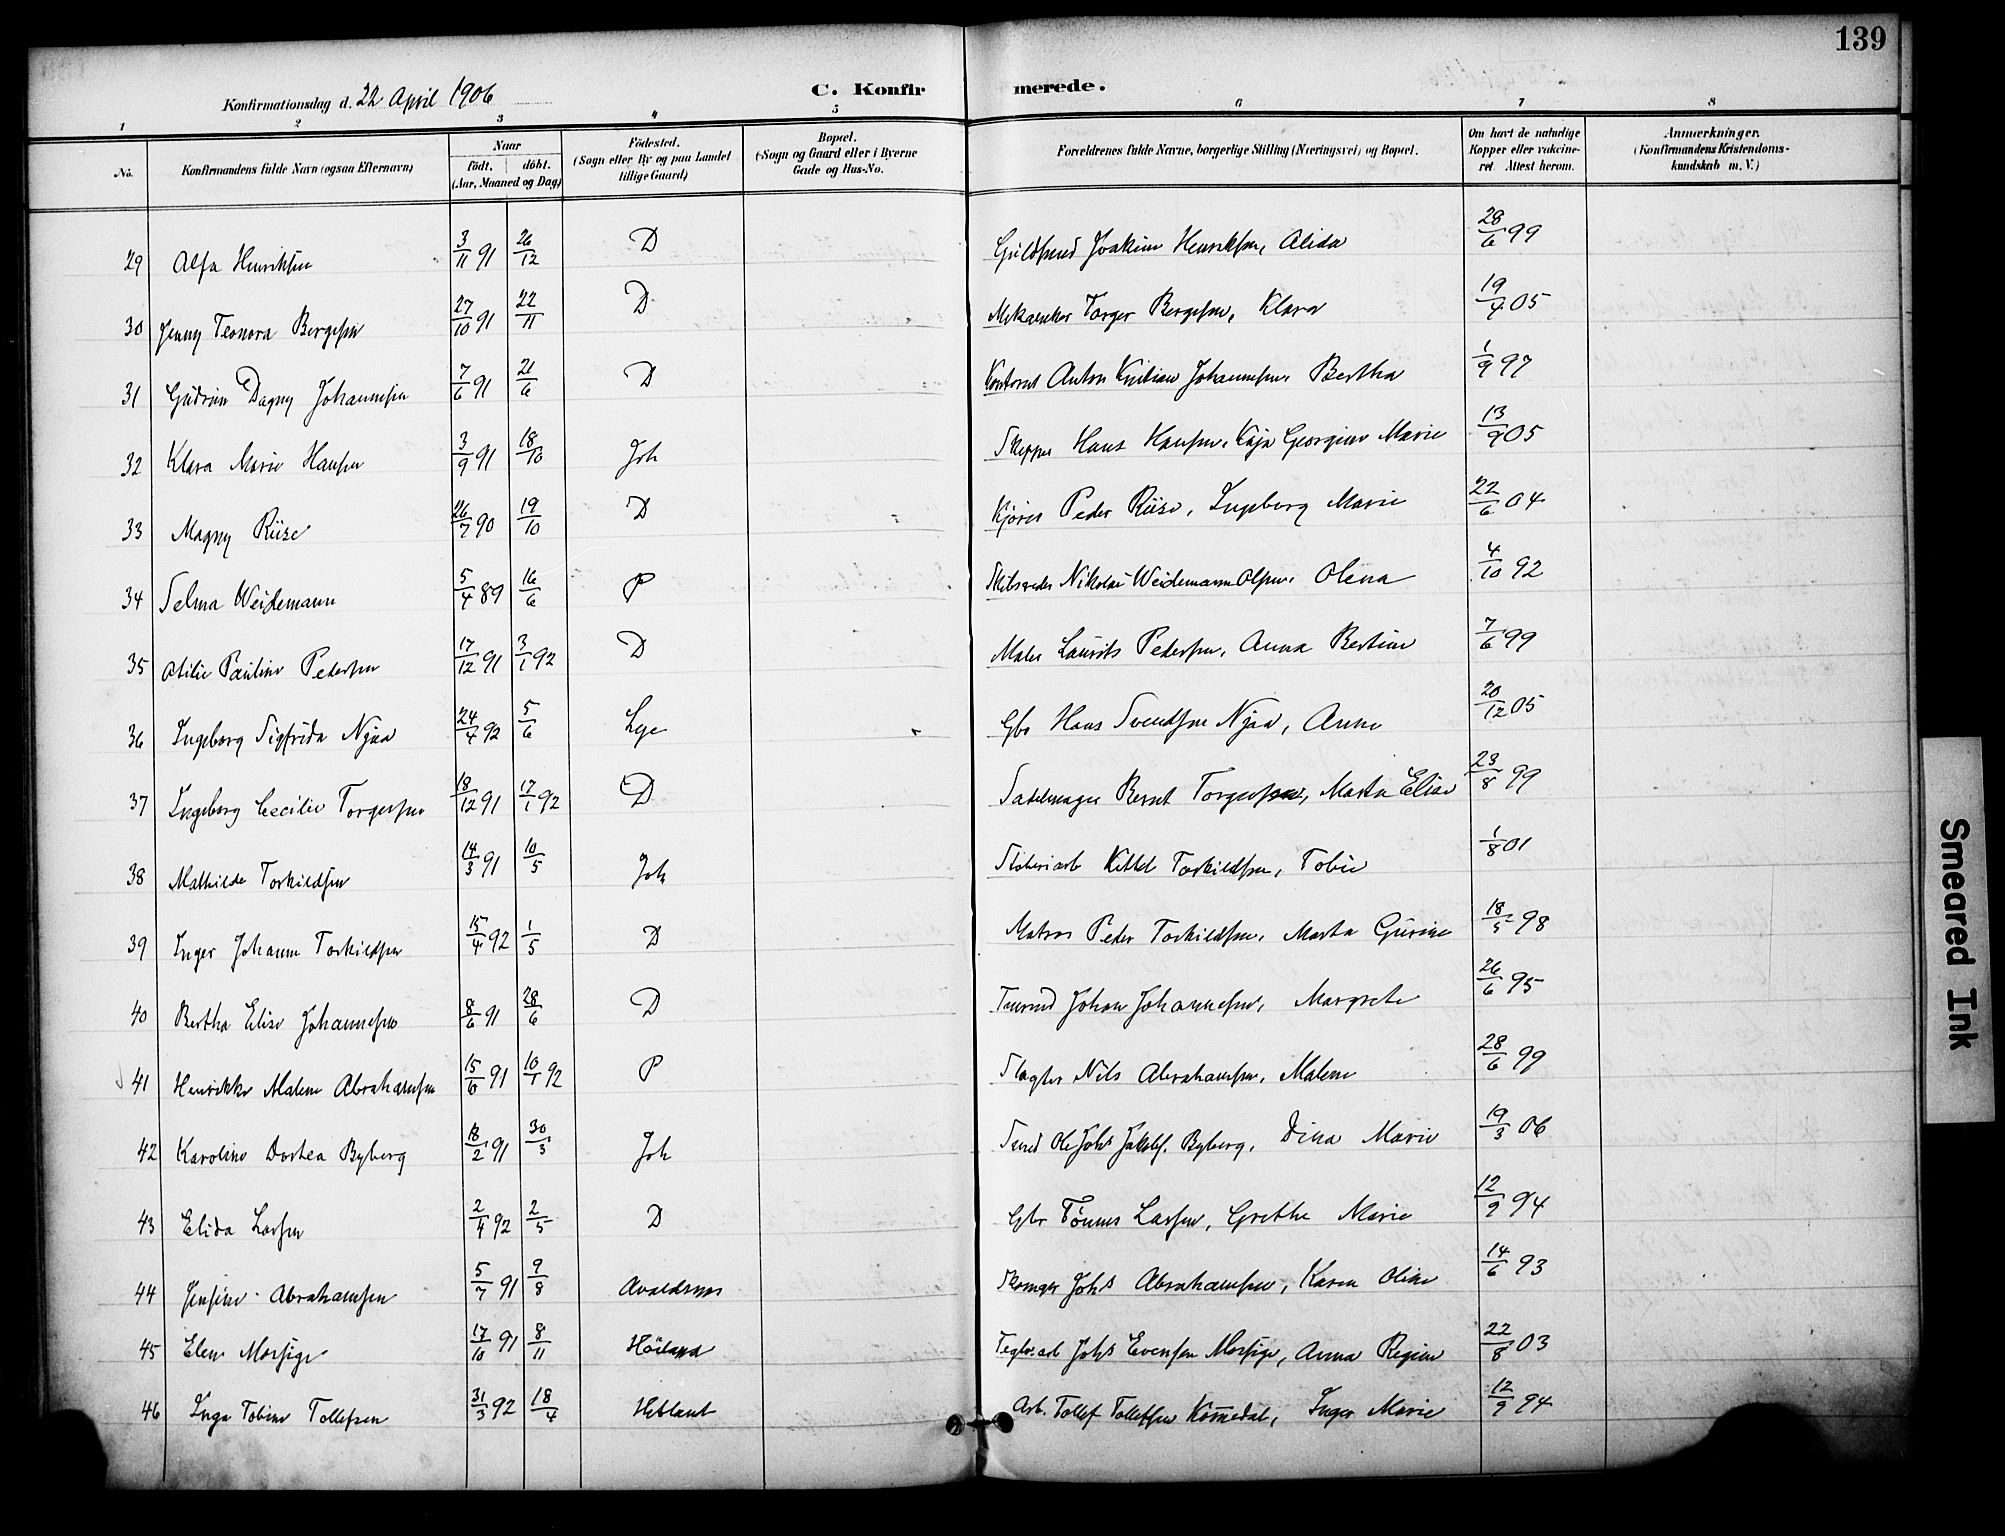 139
Konfirmationsdag d. 22 April 1906
C. Konfirmerede.
1 2 3 4 5 6 7 8
No.
Konfirmandens fulde Navn (ogsaa Efternavn)
Naar
födt. döbt.
(Aar, Maaned og Dag)
Födested.
(Sogn eller By og paa Landet tillige Gaard)
Bopæl.
(Sogn og Gaard eller i Byerne Gade og Hus-No.
Forældrenes fulde Navne, borgerlige Stilling (Næringsvei) og Bopæl.
Om havt de naturlige Kopper eller vakcineret Attest herom.
Anmærkninger.
(Konfirmandens Kristendomskundskab m. V.)
29 Alfa Henriksen 3/11 91 26/12 D Guldsmed Joakim Henriksen, Alida 28/6 99
30 Jenny Teonora Bergesen 27/10 91 22/11 D Mekaniker Torger Bergesen, Klara 19/9 05
31 Gudrun Dagny Johannesen 7/6 91 21/6 D Kontorist Anton Kristian Johannesen, Bertha 1/9 97
32 Klara Marie Hansen 3/9 91 18/10 Joh Skipper Hans Hansen, Kaja Georgine Marie 13/9 05
33 Magny Riise 26/7 90 19/10 D Kjører Peder Riise, Ingeborg Marie 22/6 04
34 Selma Weidemann 5/4 89 16/6 P Skibsreder Nikolai Weidemann Olsen, Olena 4/10 92
35 Otilie Pauline Pedersen 17/12 91 3/1 92 D Maler Laurits Pedersen, Anna Bertine 7/6 99
36 Ingeborg Sigfrida Njaa 24/4 92 5/6 Lye Gbr Hans Svendsen Njaa, Anne 20/12 05
37 Ingeborg Cecilie Torgersen 18/12 91 17/1 92 D Sadelmager Bernt Torgersen, Marta Elise 23/8 99
38 Mathilde Torkildsen 14/3 91 10/5 Joh Støberiarb Kittel Torkildsen, Tobie 1/8 01
39 Inger Johanne Torkildsen 15/4 92 1/5 D Matros Peder Torkildsen, Marta Gurine 18/5 98
40 Bertha Elise Johannesen 8/6 91 28/6 D Tømrmd Johan Johannesen, Margrete 26/6 95
41 Henrikke Malene Abrahamsen 15/6 91 10/1 92 P Slagter Nils Abrahamsen, Malene 28/6 99
42 Karoline Dortea Byberg 18/2 91 30/3 Joh Smed Ole Johs Jakobs. Byberg, Dina Marie 19/3 06
43 Elida Larsen 2/4 92 2/5 D Gbr Tønnes Larsen, Grethe Marie 12/9 94
44 Jensine Abrahamsen 5/7 91 9/8 Avaldsnes Skomager Johs Abrahamsen, Karen Oline 14/6 93
45 Elen Morsige 17/10 91 8/11 Höiland Teglv.arb Johs Evensen Morsige, Anna Regine 22/8 03
46 Inga Tobine Tollefsen 31/3 92 18/4 Hetland Arb. Tollef Tollefsen Komedal, Inger Marie 12/9 94
Smeared Ink